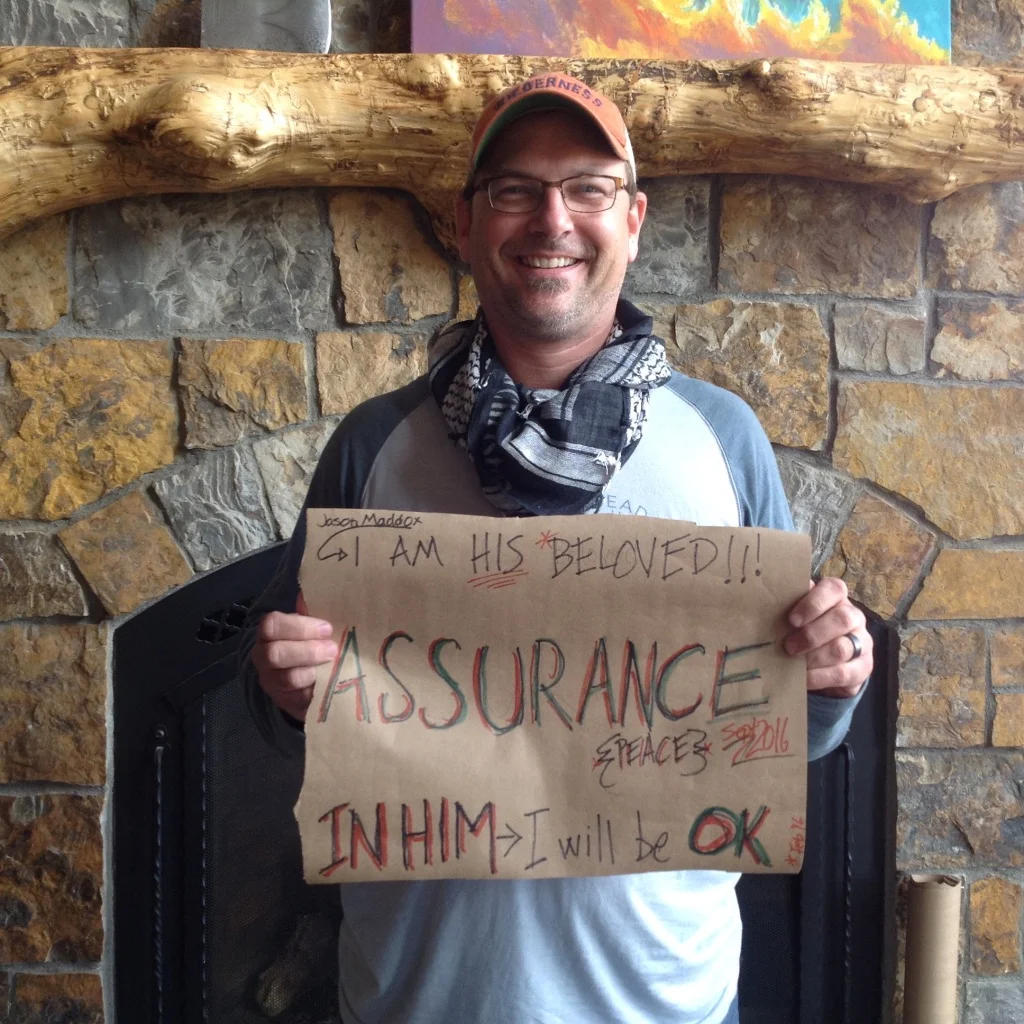 WILDERNESS
EAD
Jason Maddox
→I AM HIS *BELOVED!!!
ASSURANCE
{PEACE}* Sept 2016
IN HIM→I will be OK